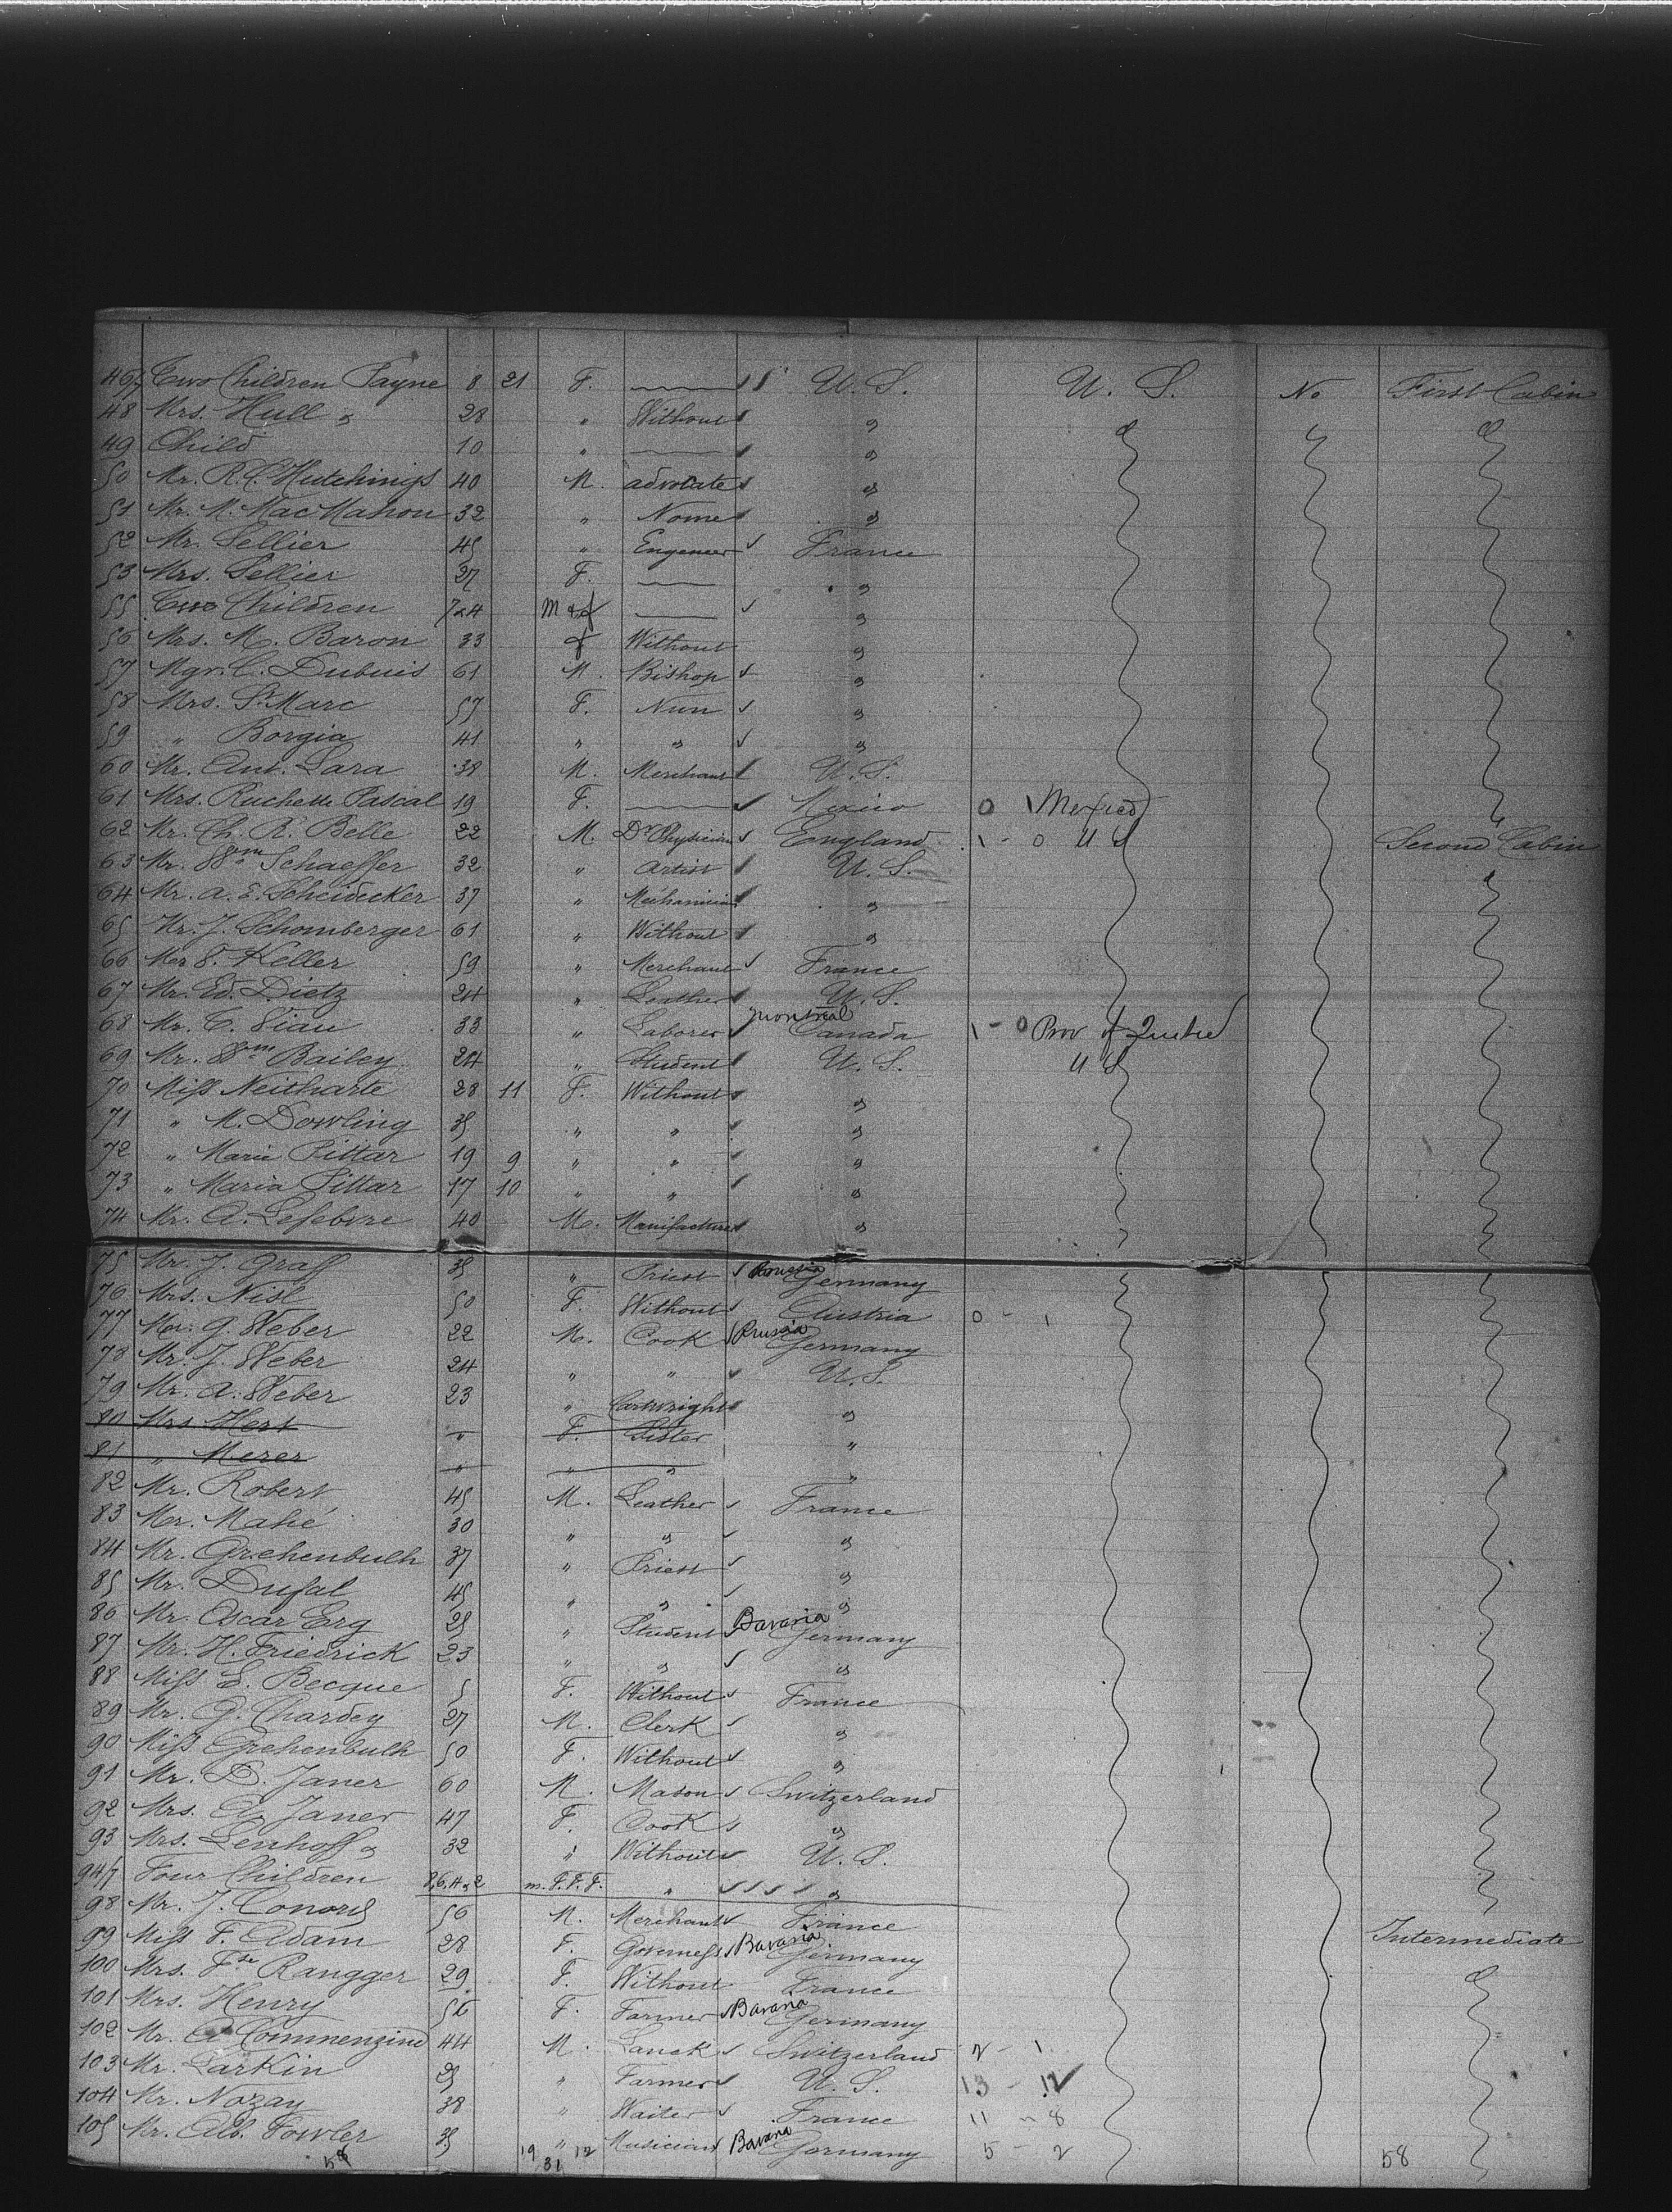 46/7 Two Children Payne 8 21 F. U. S. U. S. No First Cabin
48 Mrs. Hull & 28 " Without "
49 Child 10 " "
50 Mr. R. C. Hutchings 40 M. advocate "
51 Mr. M. MacMahon 32 " None "
52 Mr. Sellier 45 " Engeneer France
53 Mrs. Sellier 27 F. "
55 Two Children 7 & 4 M & f "
56 Mrs. M. Baron 33 f Without "
57 Mgr. C. Dubuis 61 M. Bishop "
58 Mrs. St. Marc 57 F. Nun "
59 " Borgia 41 " " "
60 Mr. Ant. Lara 38 M. Merchant U. S.
61 Mrs. Ruchette Pascal 19 F. Mexico 0 1 Mexico
62 Mr. Ch. R. Belle 22 M. Dr. Physician England 1 - 0 U S Second Cabin
63 Mr. Wm. Schaeffer 32 " Artist U. S.
64 Mr. A. E. Scheidecker 37 " Mechanician "
65 Mr. J. Schomberger 61 " Without "
66 Mr. Keller 59 " Merchant France
67 Mr. Ed. Dietz 24 " Leather U. S.
68 Mr. Viau 33 " Laborer Montreal Canada 1 - 0 Prov of Quebec
69 Mr. Wm. Bailey 24 " Student U. S. U S
70 Miss Neitharte 28 11 F. Without "
71 " M. Dowling 35 " " "
72 " Marie Pittar 19 9 " " "
73 " Maria Pittar 17 10 " " "
74 Mr. A. Lefebvre 40 M. Manifacturer "
75 Mr. J. Graff 35 " Priest Germany
76 Mrs. Nisl 50 F. Without Austria 0 - 1
77 Mr. G. Weber 22 M. Cook Prussia Germany
78 Mr. J. Weber 24 " " U. S.
79 Mr. A. Weber 23 " Cartwright "
80 Mrs Hert " F. Sister "
81 " Merer " " " "
82 Mr. Robert 45 M. Leather France
83 Mr. Mahé 30 " " "
84 Mr. Grehenbulh 37 " Priest "
85 Mr. Dufal 45 " " "
86 Mr. Oscar Erg 25 " Student Bavaria Germany
87 Mr. H. Friedrick 23 " " "
88 Miss E. Becque 5 F. Without France
89 Mr. G. Chardey 27 M. Clerk "
90 Miss Grehenbulh 50 F. Without "
91 Mr. D. Janer 60 M. Mason Switzerland
92 Mrs. A. Janer 47 F. Cook "
93 Mrs. Lenhoff & 32 " Without U. S.
94/7 Four Children 8,6,4 & 2 m. F. F. F. " "
98 Mr. J. Conord 56 M. Merchant France Intermediate
99 Miss F. Adam 28 F. Governess Bavaria Germany
100 Mrs. Rangger 29 F. Without France
101 Mrs. Henry 56 F. Farmer Bavaria Germany
102 Mr. Commenzind 44 M. Switzerland 2 - 1
103 Mr. Larkin 25 " Farmer U. S. 13 - 12
104 Mr. Nozay 38 " Waiter France 11 - 8
105 Mr. Alb. Fowler 35 " Musician Bavaria Germany 5 - 2
58 19 12 31 58